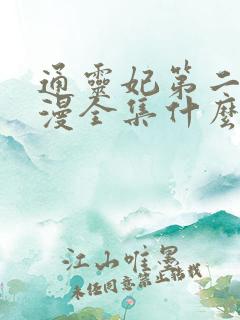 通靈妃第二
漫全集什麼
江山唯墨
未经同意禁止转载